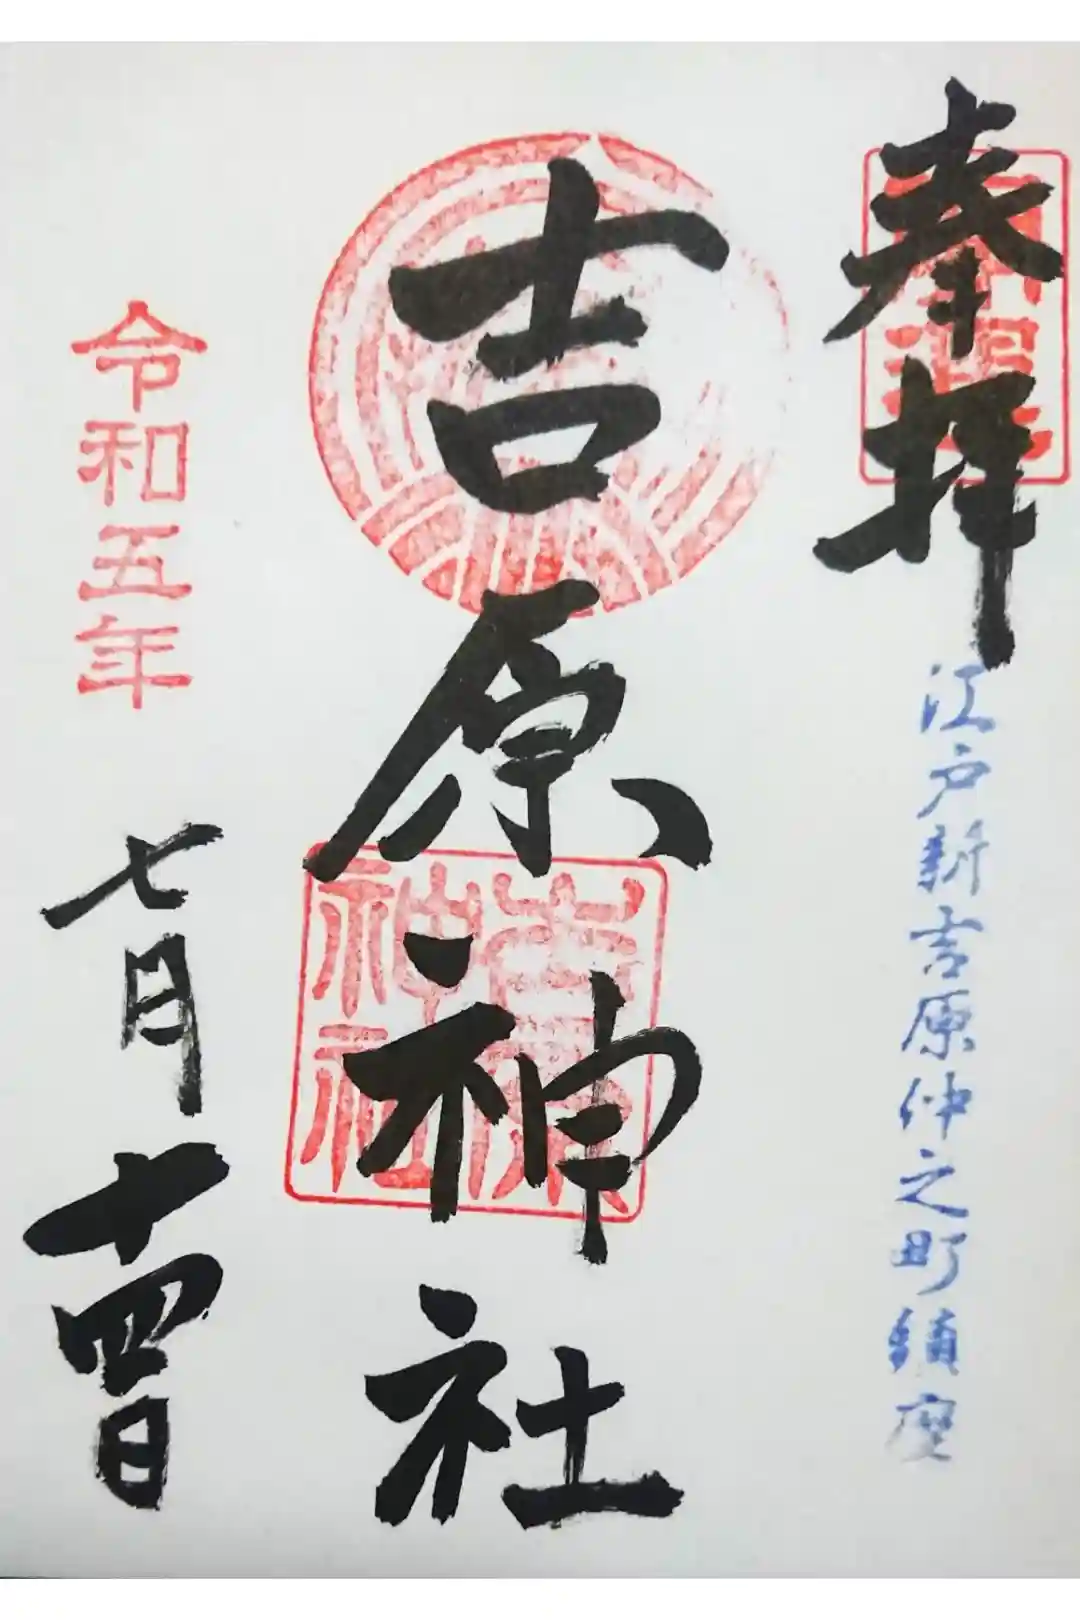 奉拝
江戸新吉原仲之町鎮座
吉原神社
吉原
神社
令和五年
七月十四日